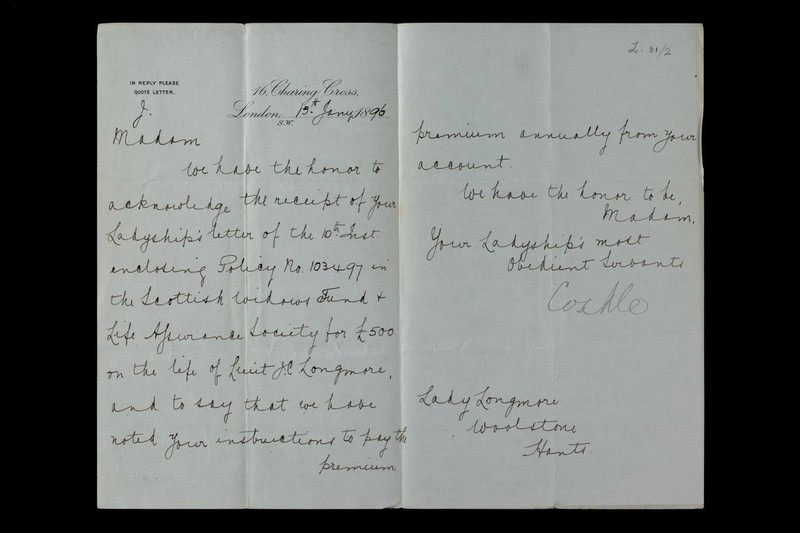 L. 21/2
IN REPLY PLEASE
QUOTE LETTER.
J.
16, Charing Cross,
London, 13th Jany 1896
S.W.
Madam
We have the honor to
acknowledge the receipt of your
Ladyship's letter of the 10th Inst
enclosing Policy No. 103497 in
the Scottish Widows Fund &
Life Assurance Society for £500
on the life of Lieut J.C Longmore,
and to say that we have
noted your instructions to pay the
premium
premium annually from your
account.
We have the honor to be,
Madam,
Your Ladyship's most
Obedient Servants
Cox & Co
Lady Longmore
Woolstone
Hants.